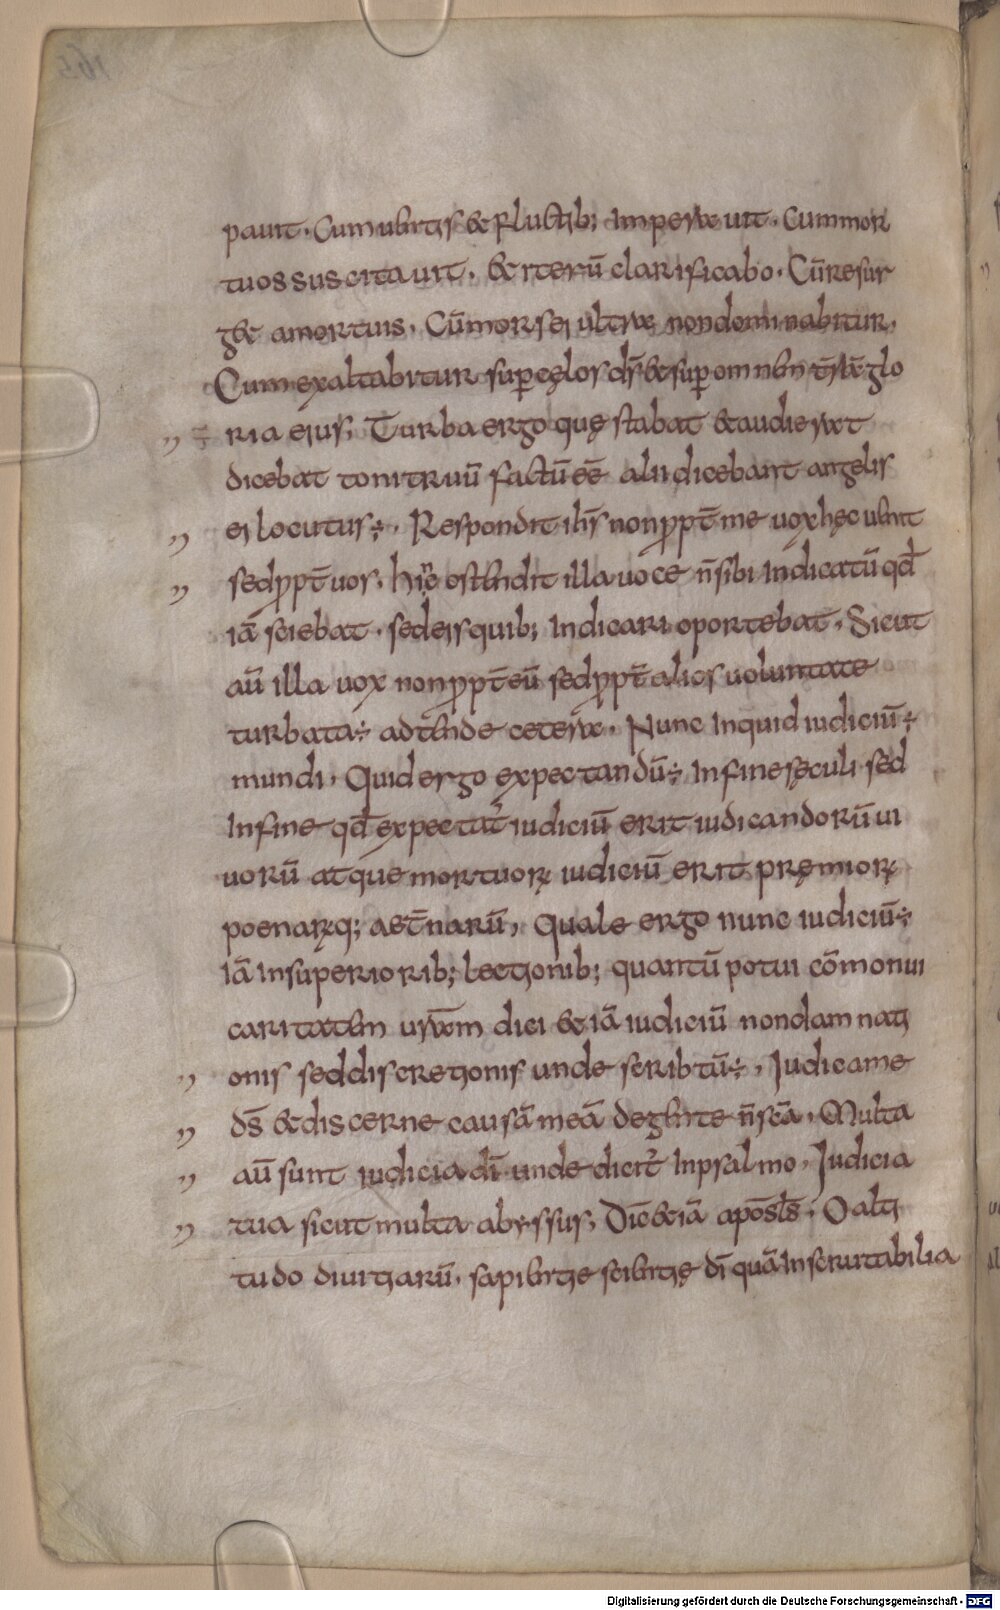 pauit. Cum uentis & fluctib; imperauit. Cum mor
tuos suscitauit. & iterū clarificabo. Cū resur
g& amortuis. Cū mors ei ultra non dominabitur.
Cum exaltabitur sup cęlos dš & sup omnem trā glo
ria eius. Turba ergo quę stabat & audierat
dicebat tonitruū factū eē alii dicebant angelis
ei locutus÷. Respondit ihs non ppt me uox hęc uenit
sed ppt uos. hic ostendit illa uoce n sibi indicatū qd
iā sciebat. sed eis quib; indicari oportebat. Sicut
aū illa uox non ppt eū sed ppt alios uoluntate
turbata÷ adtende cetera. Nunc inquid iudiciū÷
mundi. Quid ergo expectandū÷ infine sęculi sed
infine qd expectat iudiciū erit iudicandorū ui
uorū atque mortuorꝝ iudiciū erit pręmiorꝝ
poenarꝝq; aet narū. Quale ergo nunc iudiciū÷
iā in superiorib; lectionib; quantū potui cōmonui
caritatem uram dici & iā iudiciū non damnati
onis sed discretionis unde scribtū÷. Iudica me
dš & discerne causā meā degente n scā. Multa
aū sunt iudicia dī unde dicit in psalmo. Iudicia
tua sicut multa abyssus. Dic & iā apostls. O alti
tudo diuitiarū. sapientie scientię dī quā inscrutabilia
Digitalisierung gefördert durch die Deutsche Forschungsgemeinschaft - DFG